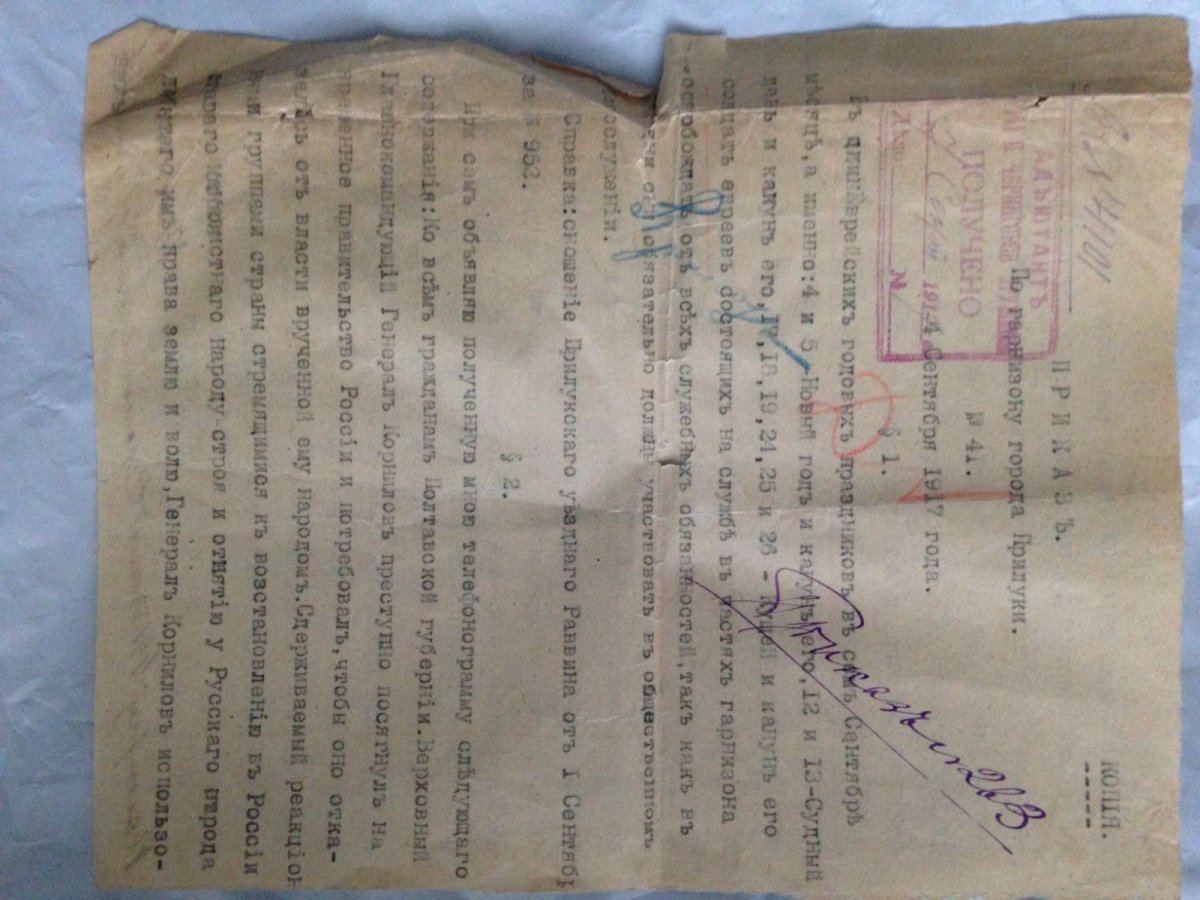 КОПІЯ.
П Р И К А З Ъ.
По гарнизону города Прилуки.
№ 41.
4 Сентября 1917 года.
АДЪЮТАНТЪ
ПОЛУЧЕНО
191
№
§ 1.
Въ дни Еврейскихъ годовыхъ праздниковъ въ семъ Сентябрѣ
мѣсяцѣ, а именно: 4 и 5 - Новый годъ и канунъ его, 12 и 13-Судный
день и канунъ его, 17, 18, 19, 24, 25 и 26 - Кущей и канунъ его
солдатъ евреевъ состоящихъ на службѣ въ частяхъ гарнизона
освобождать отъ всѣхъ служебныхъ обязанностей, такъ какъ въ
обязательно должны участвовать въ общественномъ
богослуженіи.
Справка: сношеніе Прилукскаго уѣзднаго Раввина отъ I Сентябр
за № 952.
§ 2.
При семъ объявляю полученную мною телефонограмму слѣдующаго
содержанія: Ко всѣмъ гражданамъ Полтавской губерніи. Верховный
Главнокомандующій Генералъ Корниловъ преступно посягнулъ на
временное правительство Россіи и потребовалъ, чтобы оно отка-
залось отъ власти врученной ему народомъ. Сдерживаемый реакціон
ными группами страны стремящимися къ возстановленію въ Россіи
народу строя и отнятію у Русскаго народа
права землю и волю, Генералъ Корниловъ использо-
Приказъ № 203